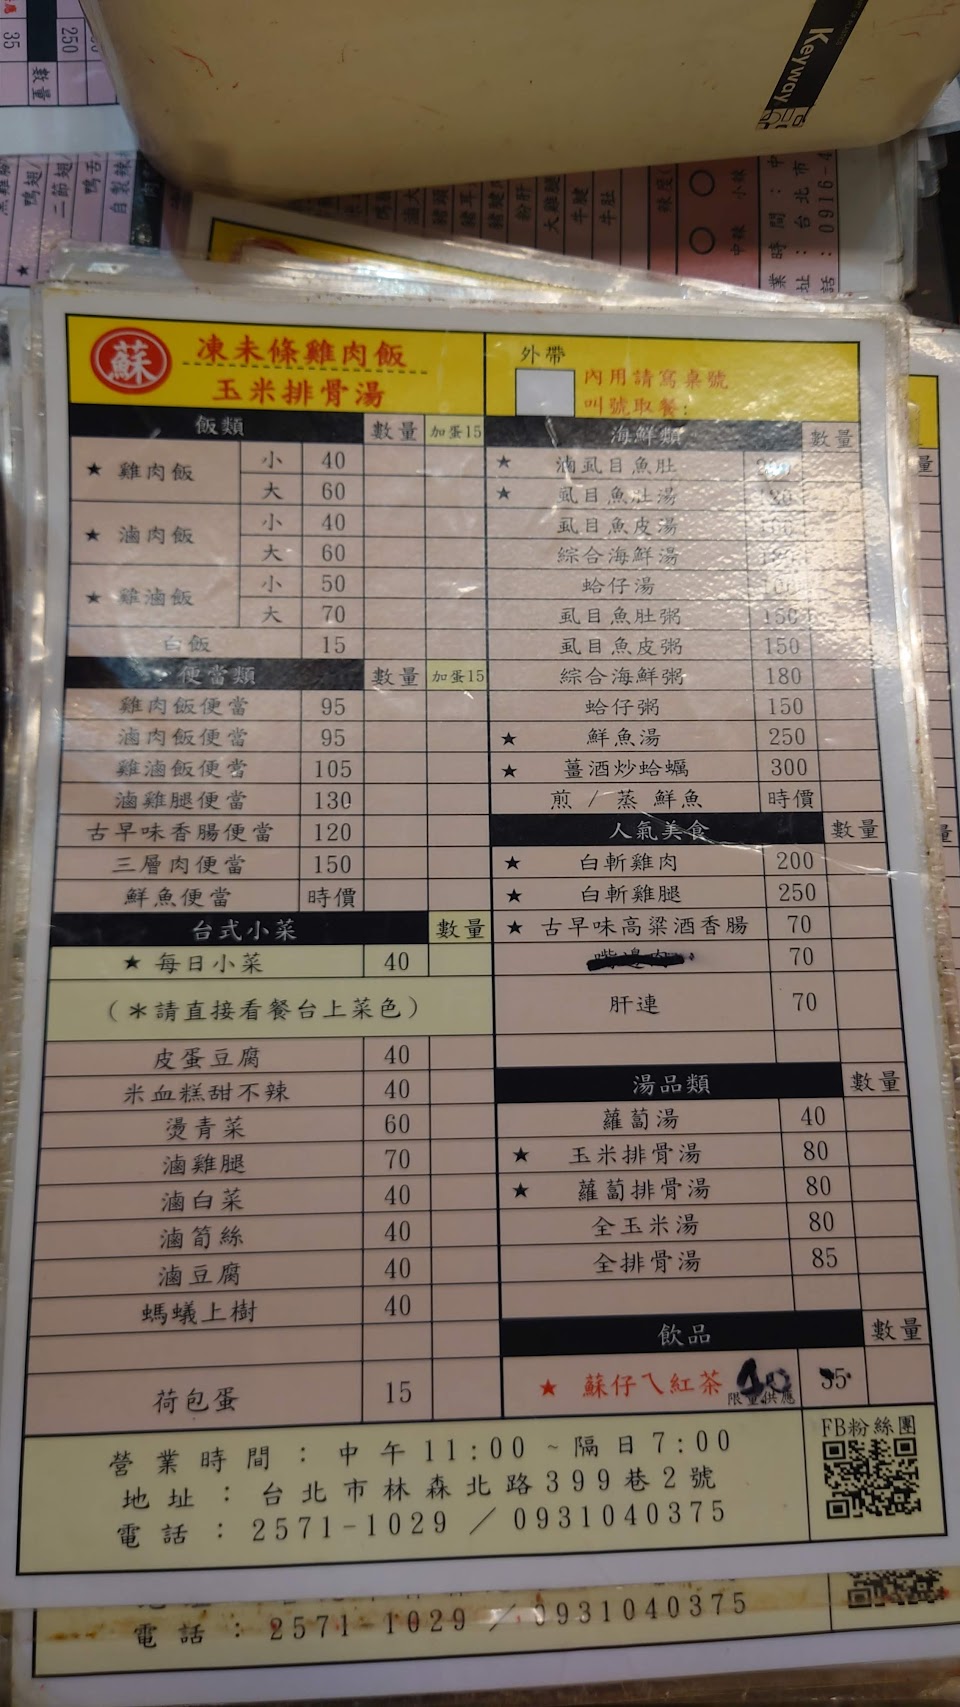 Keyway
蘇
凍未條雞肉飯
玉米排骨湯
外帶
內用請寫桌號
叫號取餐:
飯類 數量 加蛋15
★ 雞肉飯 小 40
大 60
★ 滷肉飯 小 40
大 60
★ 雞滷飯 小 50
大 70
白飯 15
便當類 數量 加蛋15
雞肉飯便當 95
滷肉飯便當 95
雞滷飯便當 105
滷雞腿便當 130
古早味香腸便當 120
三層肉便當 150
鮮魚便當 時價
台式小菜 數量
★ 每日小菜 40
(*請直接看餐台上菜色)
皮蛋豆腐 40
米血糕甜不辣 40
燙青菜 60
滷雞腿 70
滷白菜 40
滷筍絲 40
滷豆腐 40
螞蟻上樹 40
荷包蛋 15
海鮮類 數量
★ 滷虱目魚肚
★ 虱目魚肚湯
虱目魚皮湯
綜合海鮮湯
蛤仔湯
虱目魚肚粥 150
虱目魚皮粥 150
綜合海鮮粥 180
蛤仔粥 150
★ 鮮魚湯 250
★ 薑酒炒蛤蠣 300
煎 / 蒸 鮮魚 時價
人氣美食 數量
★ 白斬雞肉 200
★ 白斬雞腿 250
★ 古早味高粱酒香腸 70
70
肝連 70
湯品類 數量
蘿蔔湯 40
★ 玉米排骨湯 80
★ 蘿蔔排骨湯 80
全玉米湯 80
全排骨湯 85
飲品 數量
★ 蘇仔ㄟ紅茶 40 35
限量供應
營業時間 : 中午11:00 ~ 隔日7:00
地址 : 台北市林森北路399巷2號
電話 : 2571-1029 / 0931040375
FB粉絲團
電話 : 2571-1029 / 0931040375